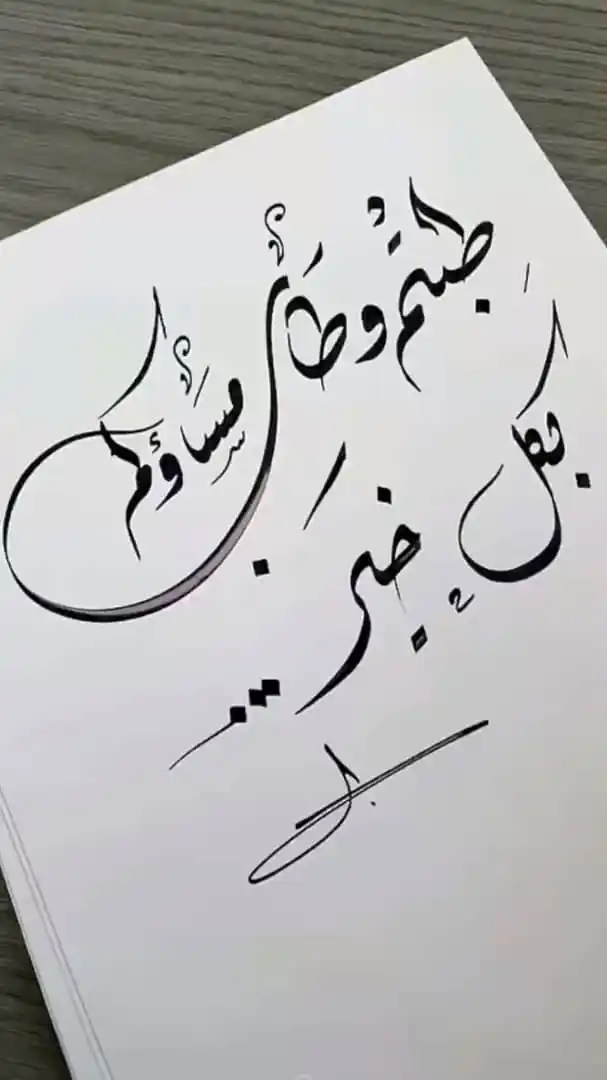 طبتم وطاب مساؤكم
بكل خير...